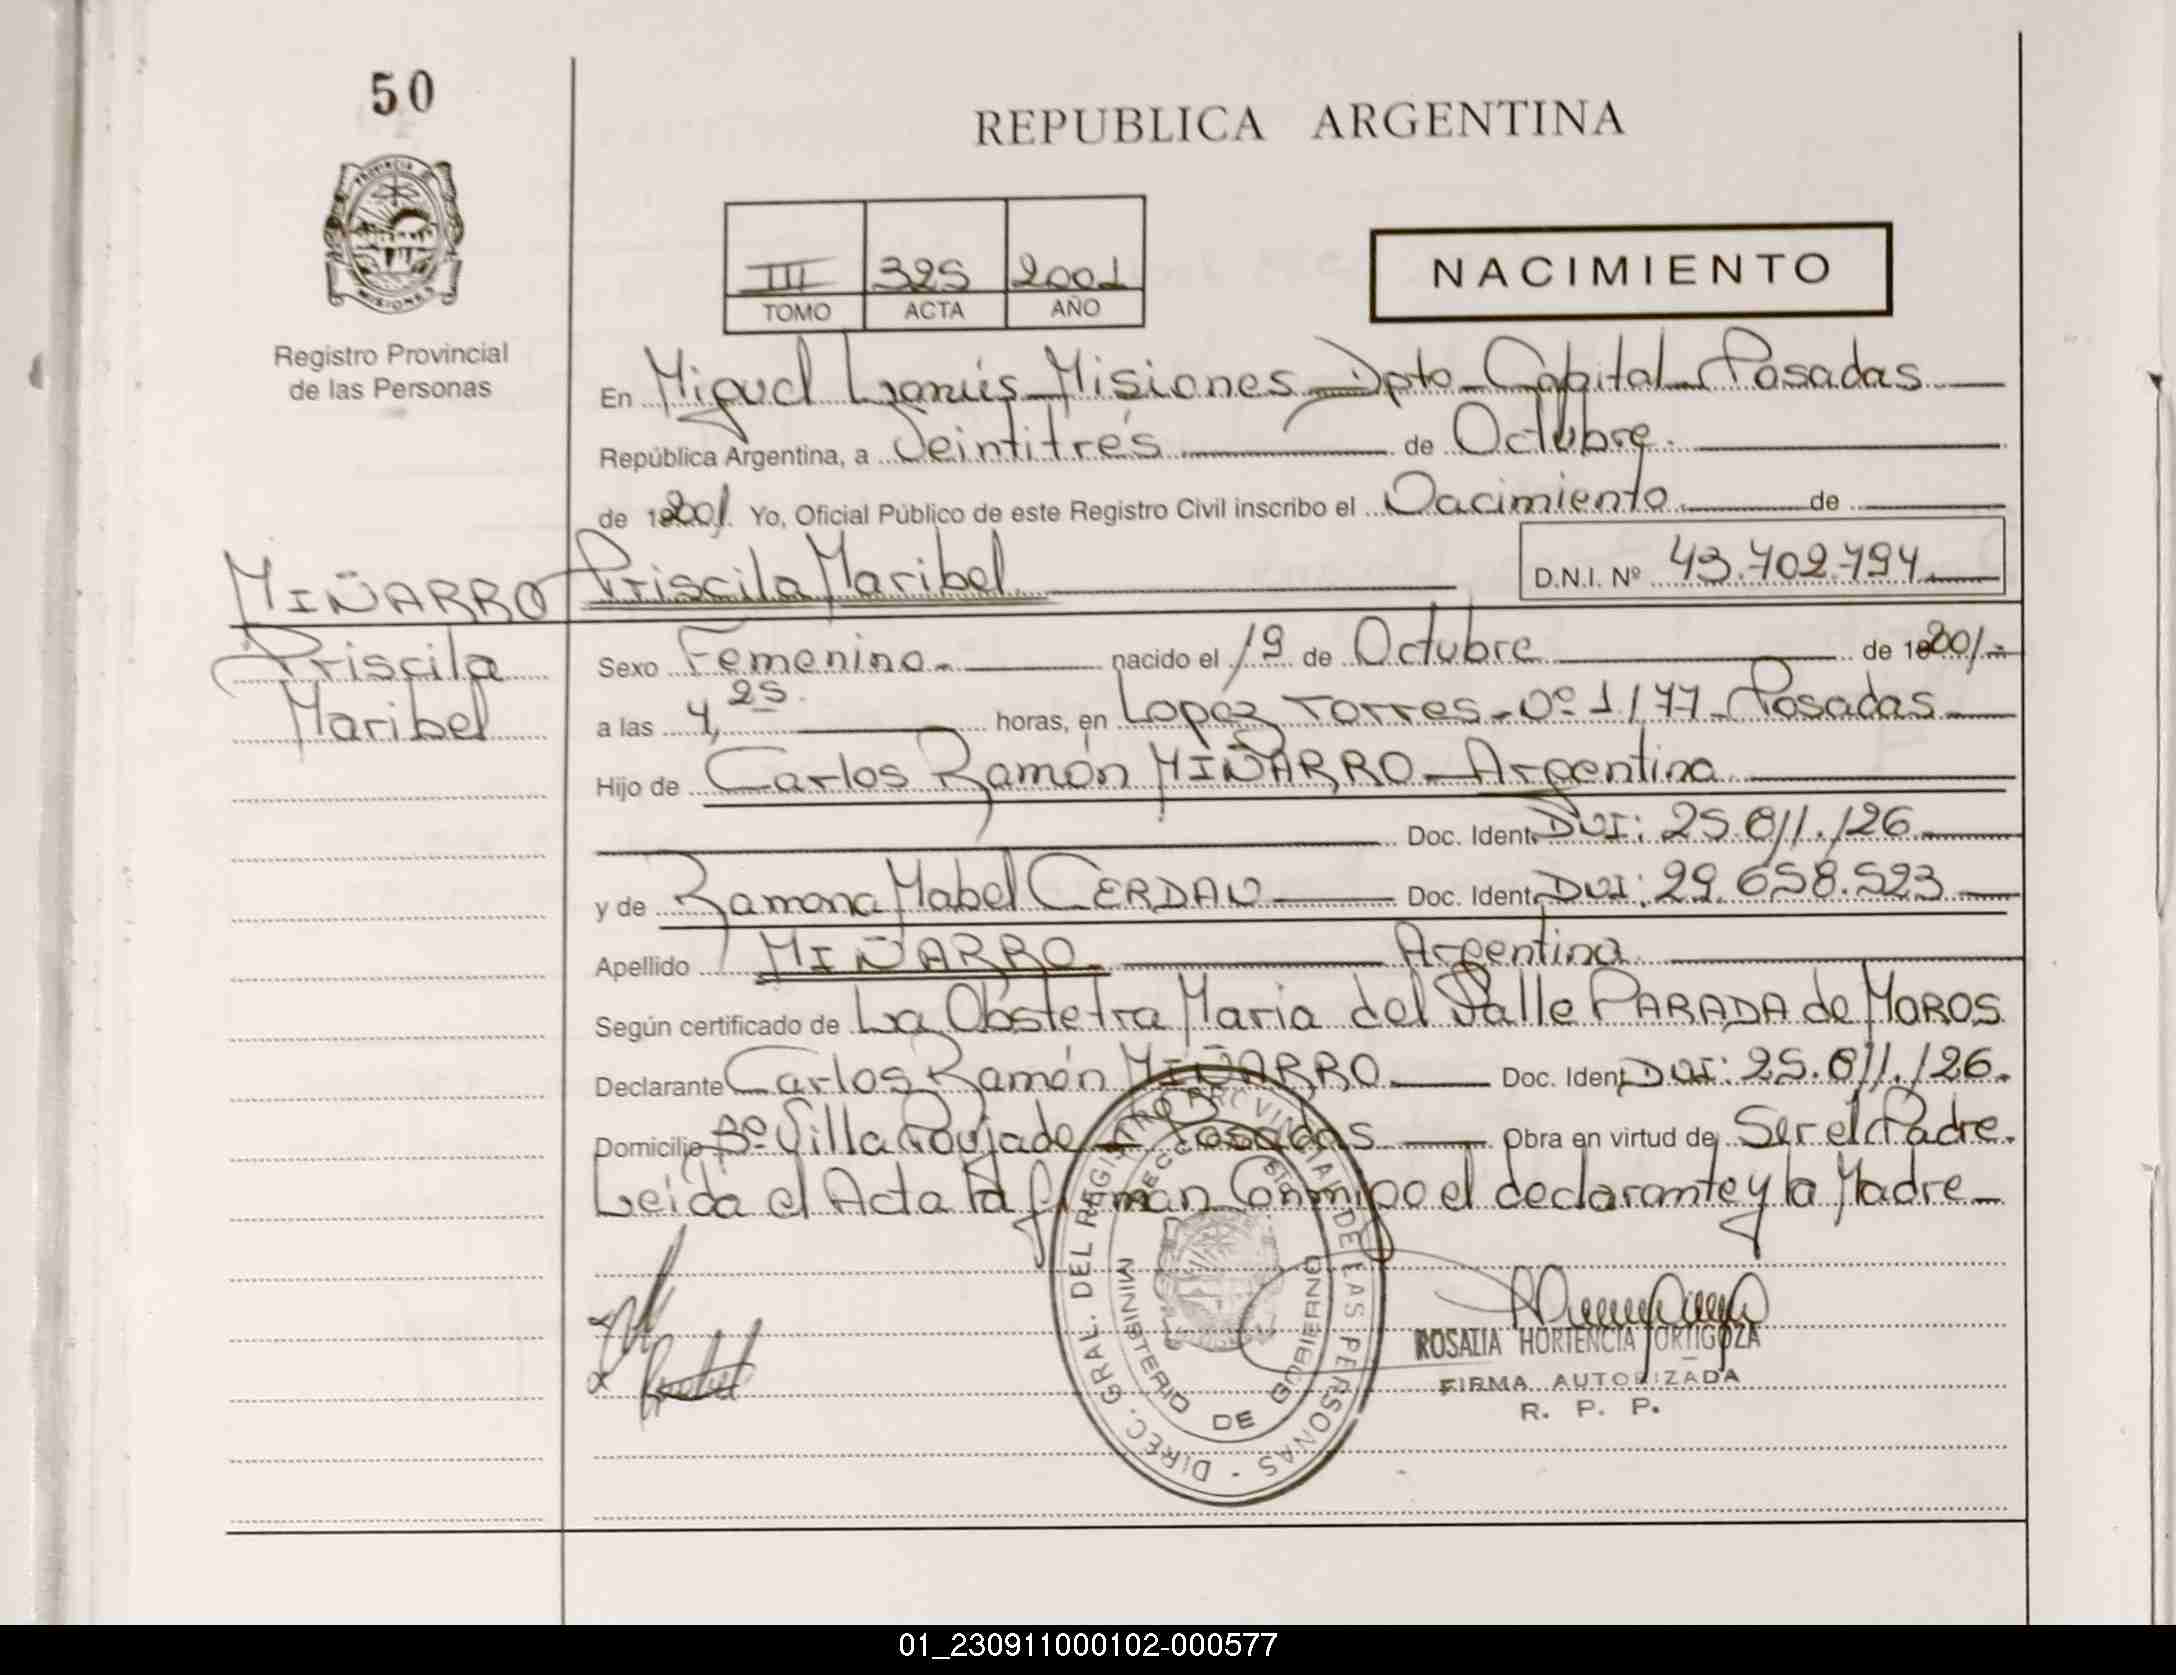 50
REPUBLICA ARGENTINA
PROVINCIA DE
MISIONES
III 325 2001
TOMO ACTA AÑO
NACIMIENTO
Registro Provincial
de las Personas
En Miguel Lanús Misiones Dpto Capital Posadas
República Argentina, a Veintitrés de Octubre
de 2001 Yo, Oficial Público de este Registro Civil inscribo el Nacimiento de
MIÑARRO Priscila Maribel D.N.I. Nº 43.702.794
Priscila
Maribel
Sexo Femenino nacido el 19 de Octubre de 2001
a las 4,25 horas, en Lopez Torres Nº 1177 Posadas
Hijo de Carlos Ramón MIÑARRO Argentina
Doc. Ident. DNI: 25.011.126
y de Ramona Mabel CERDAN Doc. Ident. DNI: 29.658.523
Apellido MIÑARRO Argentina
Según certificado de La Obstetra Maria del Valle PARADA de MOROS
Declarante Carlos Ramón MIÑARRO Doc. Ident. DNI: 25.011.126.
Domicilio Bº Villa Poujade Posadas Obra en virtud de Ser el Padre.
Leida el Acta la firman Conmigo el declarante y la Madre
DIREC. GRAL. DEL REGISTRO PROVINCIAL DE LAS PERSONAS
MINISTERIO DE GOBIERNO
ROSALIA HORTENCIA ORTIGOZA
FIRMA AUTORIZADA
R. P. P.
01_230911000102-000577